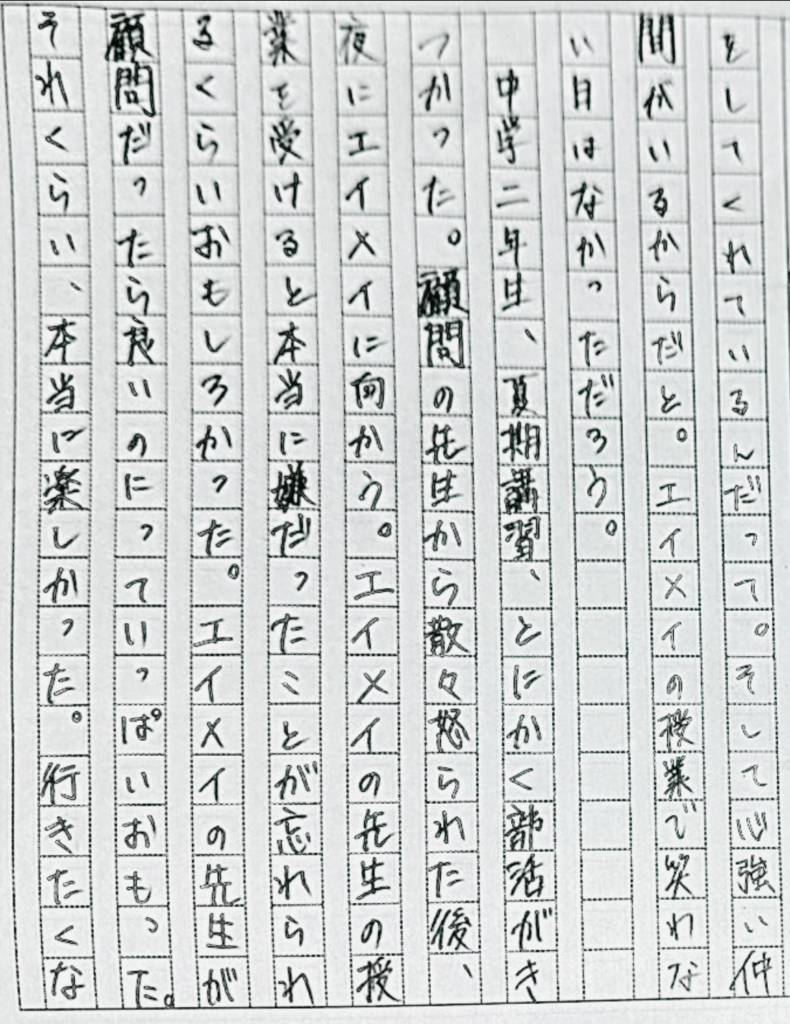 をしてくれているんだって。そして心強い仲
間がいるからだと。エイメイの授業で笑わな
い日はなかっただろう。
中学二年生、夏期講習、とにかく部活がき
つかった。顧問の先生から散々怒られた後、
夜にエイメイに向かう。エイメイの先生の授
業を受けると本当に嫌だったことが忘れられ
るくらいおもしろかった。エイメイの先生が
顧問だったら良いのにっていっぱいおもった。
それくらい、本当に楽しかった。行きたくな